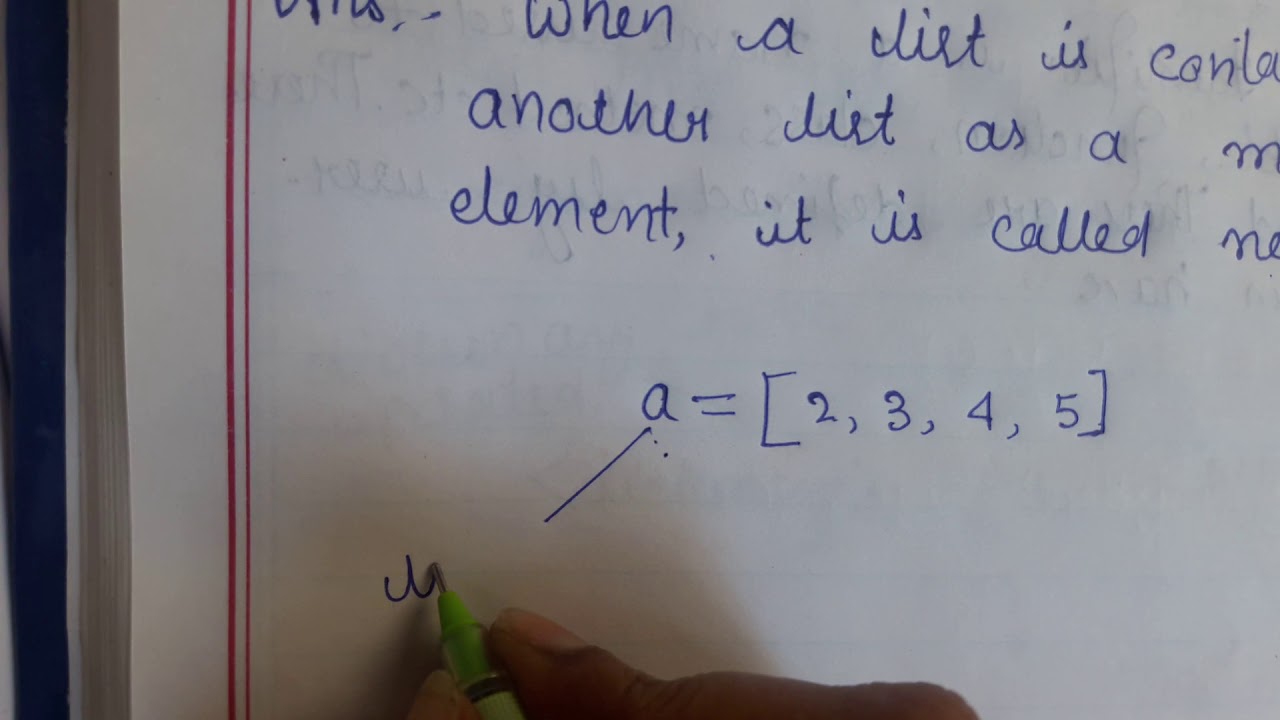 Ans.- When a list is
another list as a
element, it is called
a = [2, 3, 4, 5]